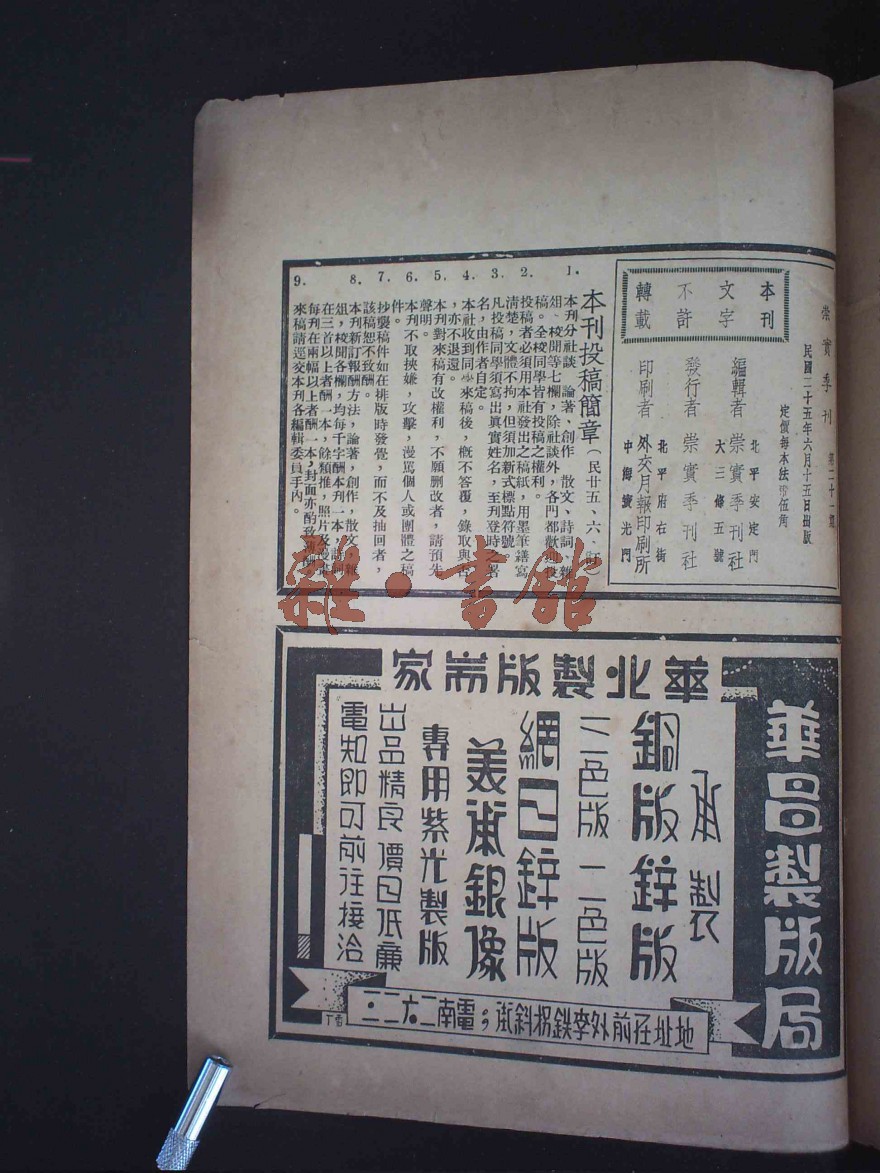 崇實季刊 第二十一期
民國二十五年六月十五日出版
定價每本法幣伍角
本刊
文字
不許
轉載
編輯者 崇實季刊社
北平安定門
大三條五號
發行者 崇實季刊社
北平府右街
印刷者 外交月報印刷所
中海瀛光門
本刊投稿簡章(民廿五、六、
1. 本刊分社談 論著、創作 散文、詩詞、雜
俎、校聞等七欄,除社談外,各門都歡迎投
稿。全校同學皆有投稿之權利。
2. 投稿者必須用本社發出之稿紙,用墨筆繕寫
清楚,文體不拘,但須加新式標點符號。
3. 凡投稿同學須寫出眞實姓名,至刋登時之署
名,由作者自定。
4. 本社收到同學來稿後,概不答覆,錄取與否
,亦不退還。
5. 本刊對來稿有改權利,不願删改者,請預先
聲明。
6. 本刊不取挾嫌,攻擊,漫罵個人或團體之稿
件。
7. 抄襲稿件如在排版時發覺,而不及抽回者,
該稿恕不致酬。
8. 本刊新訂報酬方法,論著,創作,散文,雜
俎,校聞各欄,均每千字酬本刊一本,詩詞
在三首以上者酬一本,餘類推,照片及漫畫
每刊在兩幅以上者酬一本,封面亦酌致薄酬
9. 來稿請逕交本刊各編輯委員手內。
雜·書館
華昌製版局
華北製版專家
承製
銅版鋅版
三色版 二色版
網目鋅版
美術銀像
專用紫光製版
出品精良價目低廉
電知即可前往接洽
地址在前外李鉄拐斜街;電南二六二二